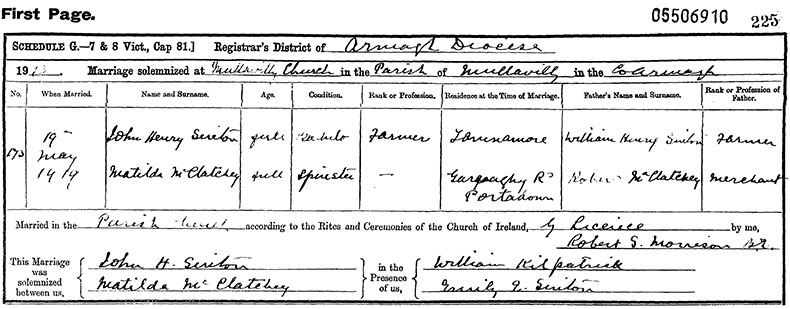 First Page. 05506910 225
SCHEDULE G.—7 & 8 Vict., Cap 81.] Registrar's District of Armagh Diocese
19 Marriage solemnized at Mullavilly Church in the Parish of Mullavilly in the Co Armagh
No. When Married. Name and Surname. Age. Condition. Rank or Profession. Residence at the Time of Marriage. Father's Name and Surname. Rank or Profession of Father.
173 19 May 1919
John Henry Sinton full Farmer William Henry Sinton Farmer
Matilda McClatchey full Spinster — Rd Portadown Robert McClatchey Merchant
Married in the Parish Church according to the Rites and Ceremonies of the Church of Ireland, by Licence by me,
Robert S. Morrison
This Marriage was solemnized between us, John H. Sinton in the Presence of us, William Kilpatrick
Matilda McClatchey Emily Sinton